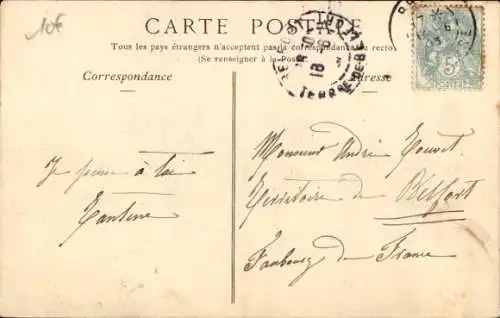 10€
CARTE POSTALE
Tous les pays étrangers n'acceptent pas la correspondance au recto
(Se renseigner à la Poste)
Correspondance
Adresse
Je pense à toi
Tantine
Monsieur André
Territoire de Belfort
Faubourg de France
5c